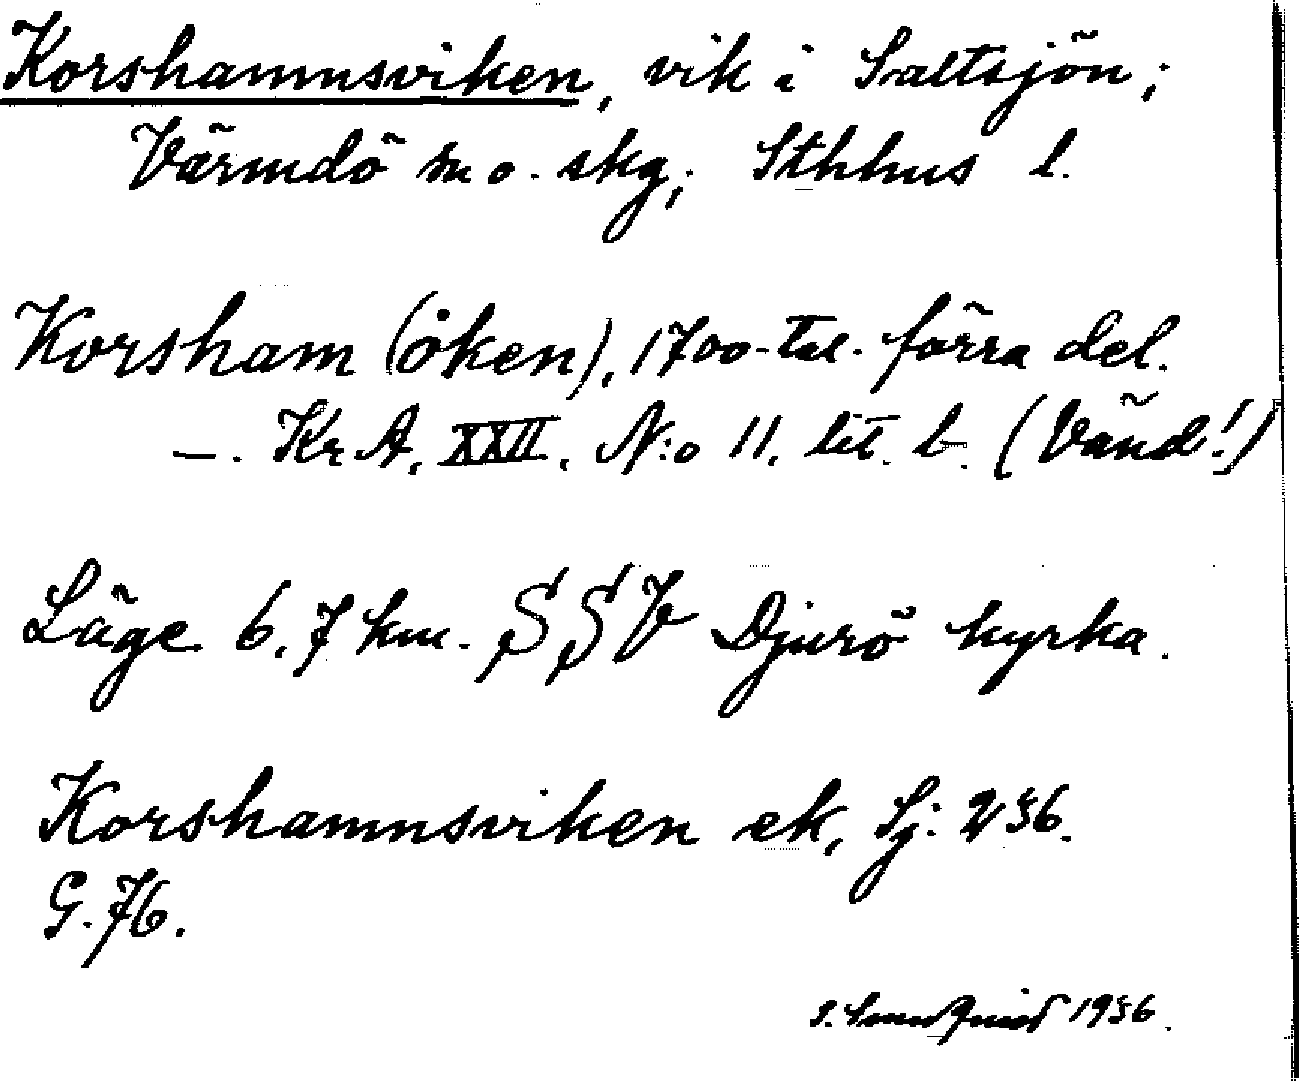 Korshamnsviken, vik i Saltsjön;
Värmdö sn o. skg; Sthlms l.
Korsham (öken), 1700-tal. förra del.
—. Kr A. XXII. N:o 11. lit. b. (Vänd!)
Läge 6.7 km. SSV Djurö kyrka.
Korshamnsviken ek, Sj. 236.
G. 76.
1936.